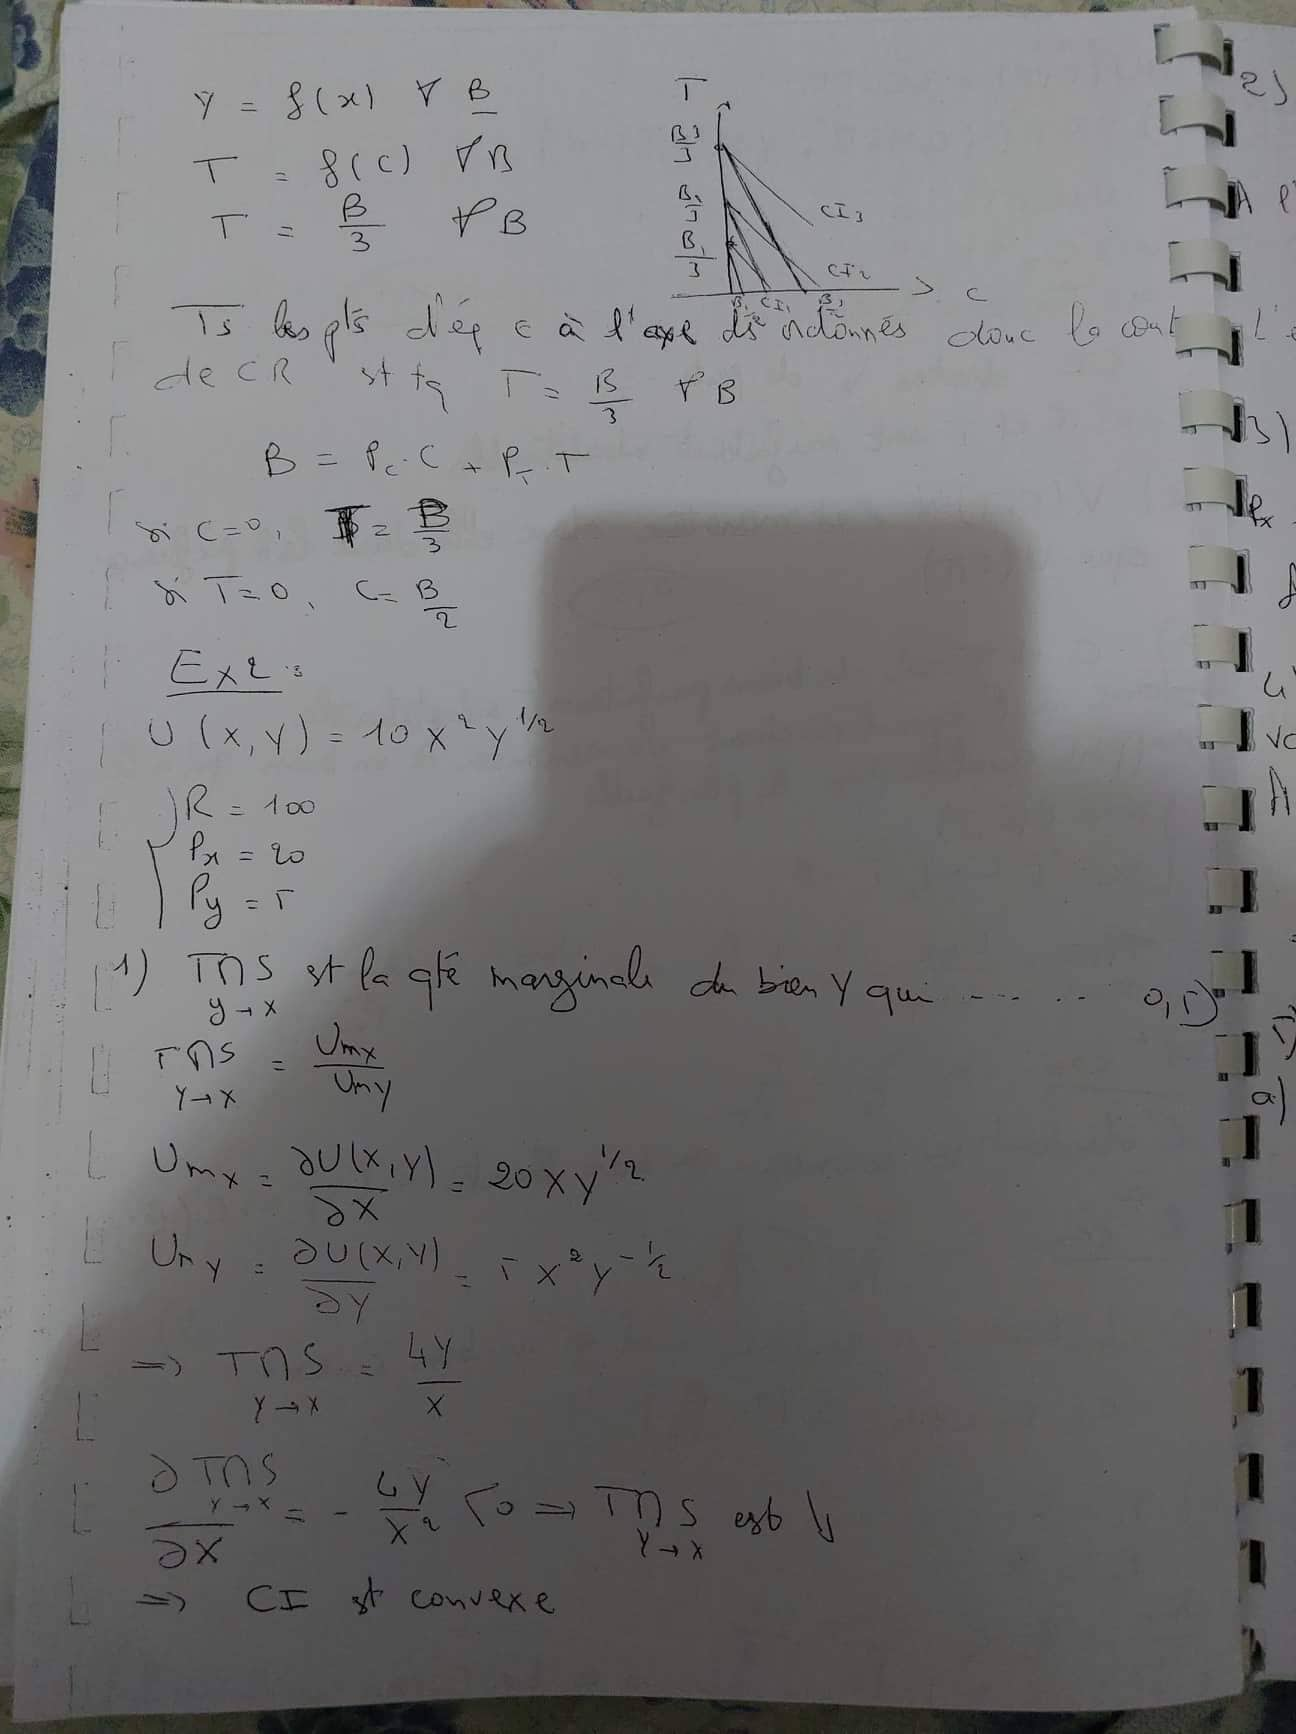 Y = f(x) ∀ B
T = f(C) ∀B
T = B/3 ∀B
T
B3/3
B2/3
B1/3
CI3
CI2
B1 CI1 B3
2
C
Ts les pts d'éq ∈ à l'axe des ordonnés donc la
de CR st tq T = B/3 ∀ B
B = Pc . C + PT . T
si C=0, T = B/3
si T=0, C= B/2
Ex2 :
U (X, Y) = 10 X² Y^1/2
R = 100
Px = 20
Py = 5
1) TMS y→x st la qté marginale du bien Y qui ...... 0,5)
TMS Y→X = Umx/UmY
Umx = ∂U(X,Y)/∂X = 20XY^1/2
UmY = ∂U(X,Y)/∂Y = 5 X²Y^-1/2
=> TMS Y→X = 4Y/X
∂TMS Y→X/∂X = - 4Y/X² <0 => TMS Y→X est ↘
=> CI st convexe
2)
3)
Px
5)
a)